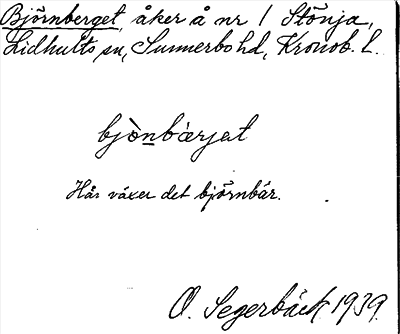 Björnberget, åker å nr 1 Stönja,
Lidhults sn, Sunnerbo hd, Kronob. l.
bjònbærjet
Här växer det björnbär.
O. Segerbäck 1939.